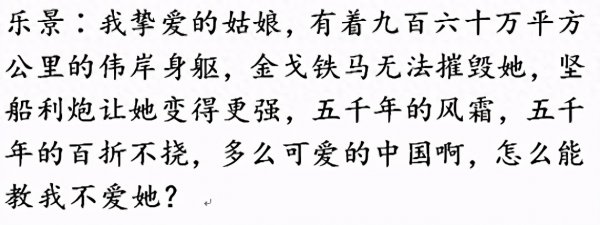 乐景：我挚爱的姑娘，有着九百六十万平方
公里的伟岸身躯，金戈铁马无法摧毁她，坚
船利炮让她变得更强，五千年的风霜，五千
年的百折不挠，多么可爱的中国啊，怎么能
教我不爱她？